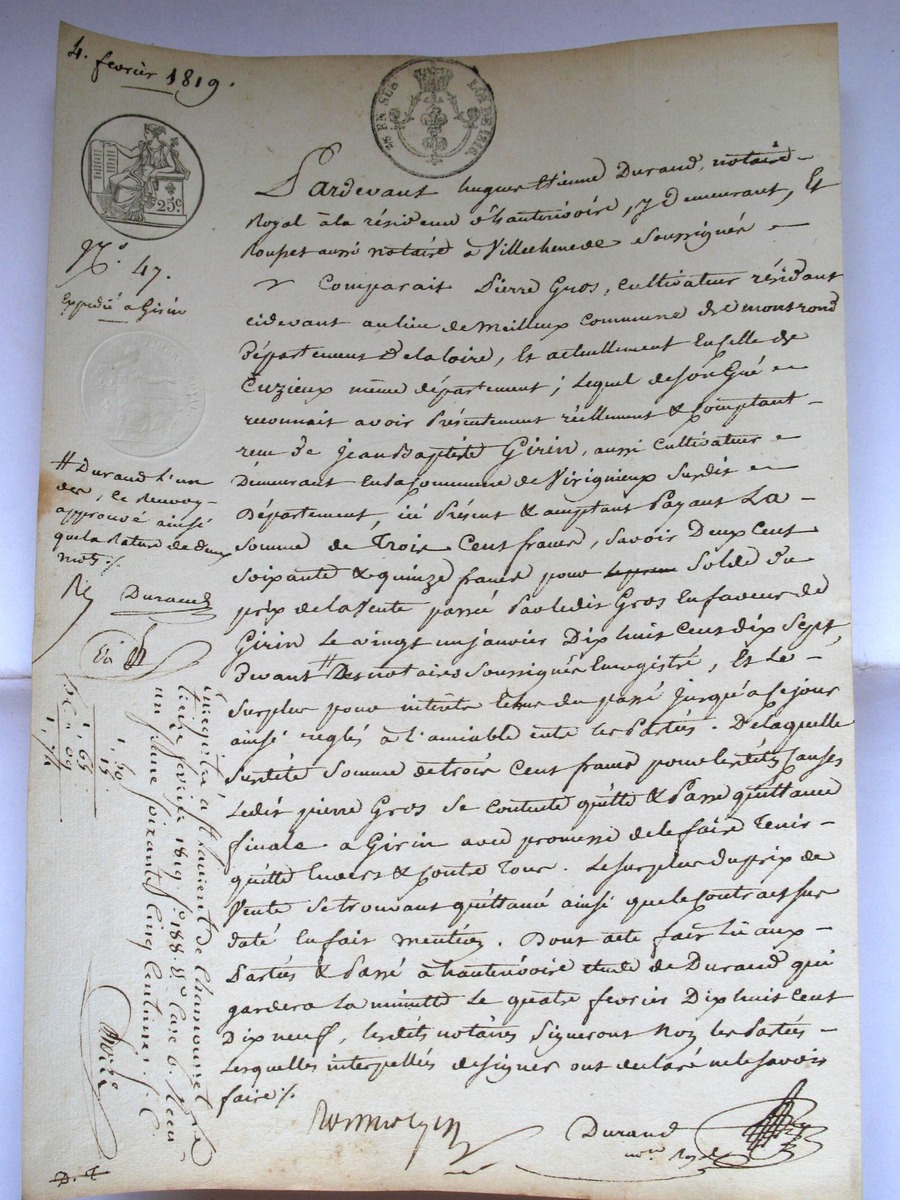 4. fevrier 1819.
EN SUS
LOI DE 1816.
25c.
N.° 47.
Expedié a Girin
Pardevant hugues Etienne Durand, notaire
Royal à la résidence d'hauterivoire, y demeurant, Et
aussi notaire à Villechenede soussignés
Comparait Pierre Gros, Cultivateur résidant
cidevant au lieu de Meilleux Commune de montrond
Département de la loire, Et actuellement En celle de
Cuzieux même département; lequel de son Gré
reconnait avoir Présentement réellement & Comptant
recu de Jean Baptiste Girin, aussi Cultivateur
Demeurant En la Commune de Virignieux Susdit
Département, ici Présent & acceptant Payant La
Somme de Trois Cent francs, savoir Deux Cent
soixante & quinze francs pour Solde du
prix de la Vente passée Par ledit Gros En faveur de
Girin Le vingt un janvier Dix huit Cent dix Sept,
Devant # Des notaires Soussignés Enregistré, Et Le
Surplus pour interets Echus du passé jusqu'a ce jour
ainsi reglés à l'amiable entre les Parties. De laquelle
Susdite Somme de trois Cent francs pour lesdites Causes
Ledit pierre Gros se Contente quitte & Passe quittance
finale a Girin avec promesse de le faire Tenir
quitte Envers & Contre Tous. Le surplus du prix de
Vente se trouvant quittancé ainsi que le Contrat sus
daté En fait mention. Dont acte fait lû aux
Parties & Passé à hauterivoire étude de Durand qui
gardera la minutte Le quatre fevrier Dix huit cent
Dix neuf, lesdits notaires Signeront Non les Parties
Lesquelles interpellées de signer ont declaré ne le savoir
faire ./.
# Durand L'un
des, Ce Renvoy
approuvé ainsi
que la Rature de deux
mots ./.
Durand
1,50.
15
1,65
1,74
Enregistré a St Laurent de Chamousset le
fevrier 1819. f° 188. Case 6. Reçu
un franc soixante cinq Centimes.
Durand
nore Royal
D. T